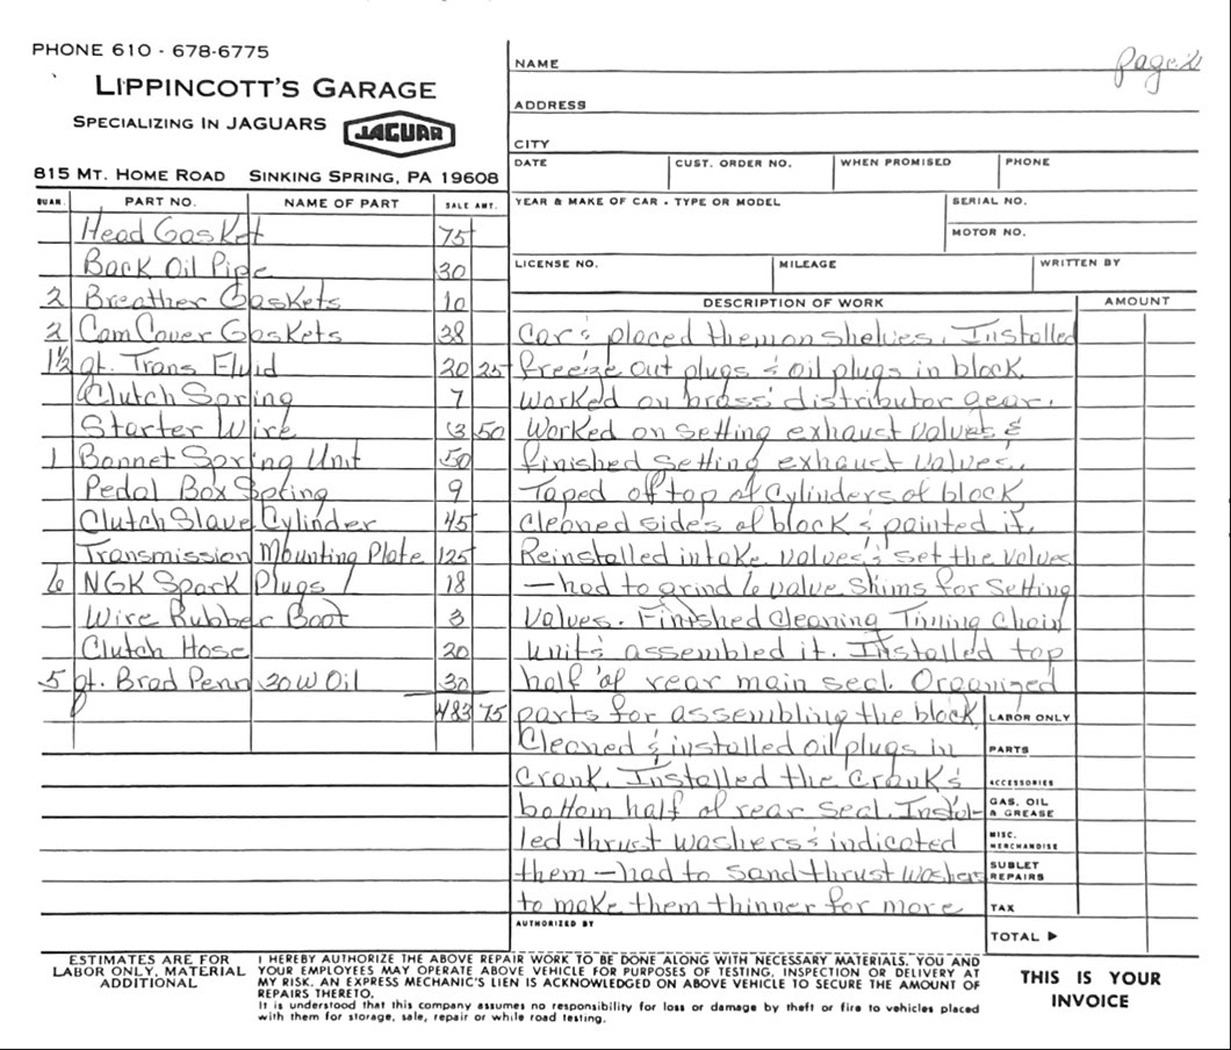 PHONE 610 - 678-6775
LIPPINCOTT'S GARAGE
SPECIALIZING IN JAGUARS
JAGUAR
815 MT. HOME ROAD SINKING SPRING, PA 19608
NAME
Page 2
ADDRESS
CITY
DATE CUST. ORDER NO. WHEN PROMISED PHONE
YEAR & MAKE OF CAR - TYPE OR MODEL SERIAL NO.
MOTOR NO.
LICENSE NO. MILEAGE WRITTEN BY
QUAN. PART NO. NAME OF PART SALE AMT.
Head Gasket 75
Back Oil Pipe 30
2 Breather Gaskets 10
2 Cam Cover Gaskets 38
1½ qt. Trans Fluid 20 25
Clutch Spring 7
Starter Wire 3 50
1 Bonnet Spring Unit 50
Pedal Box Spring 9
Clutch Slave Cylinder 45
Transmission Mounting Plate 125
6 NGK Spark Plugs 18
Wire Rubber Boot 3
Clutch Hose 20
5 qt. Brad Penn 30W Oil 30
483 75
DESCRIPTION OF WORK AMOUNT
car & placed them on shelves. Installed
freeze out plugs & oil plugs in block.
Worked on brass distributor gear.
Worked on setting exhaust valves &
finished setting exhaust valves.
Taped off top of cylinders of block
cleaned sides of block & painted it.
Reinstalled intake valves & set the valves
—had to grind 6 valve shims for setting
valves. Finished cleaning Timing Chain
unit & assembled it. Installed top
half of rear main seal. Organized
parts for assembling the block
Cleaned & installed oil plugs in
crank. Installed the crank &
bottom half of rear seal. Instal-
led thrust washers & indicated
them —had to sand thrust washers
to make them thinner for more
LABOR ONLY
PARTS
ACCESSORIES
GAS, OIL
& GREASE
MISC.
MERCHANDISE
SUBLET
REPAIRS
TAX
AUTHORIZED BY
TOTAL ▶
ESTIMATES ARE FOR
LABOR ONLY, MATERIAL
ADDITIONAL
I HEREBY AUTHORIZE THE ABOVE REPAIR WORK TO BE DONE ALONG WITH NECESSARY MATERIALS. YOU AND
YOUR EMPLOYEES MAY OPERATE ABOVE VEHICLE FOR PURPOSES OF TESTING, INSPECTION OR DELIVERY AT
MY RISK. AN EXPRESS MECHANIC'S LIEN IS ACKNOWLEDGED ON ABOVE VEHICLE TO SECURE THE AMOUNT OF
REPAIRS THERETO.
It is understood that this company assumes no responsibility for loss or damage by theft or fire to vehicles placed
with them for storage, sale, repair or while road testing.
THIS IS YOUR
INVOICE